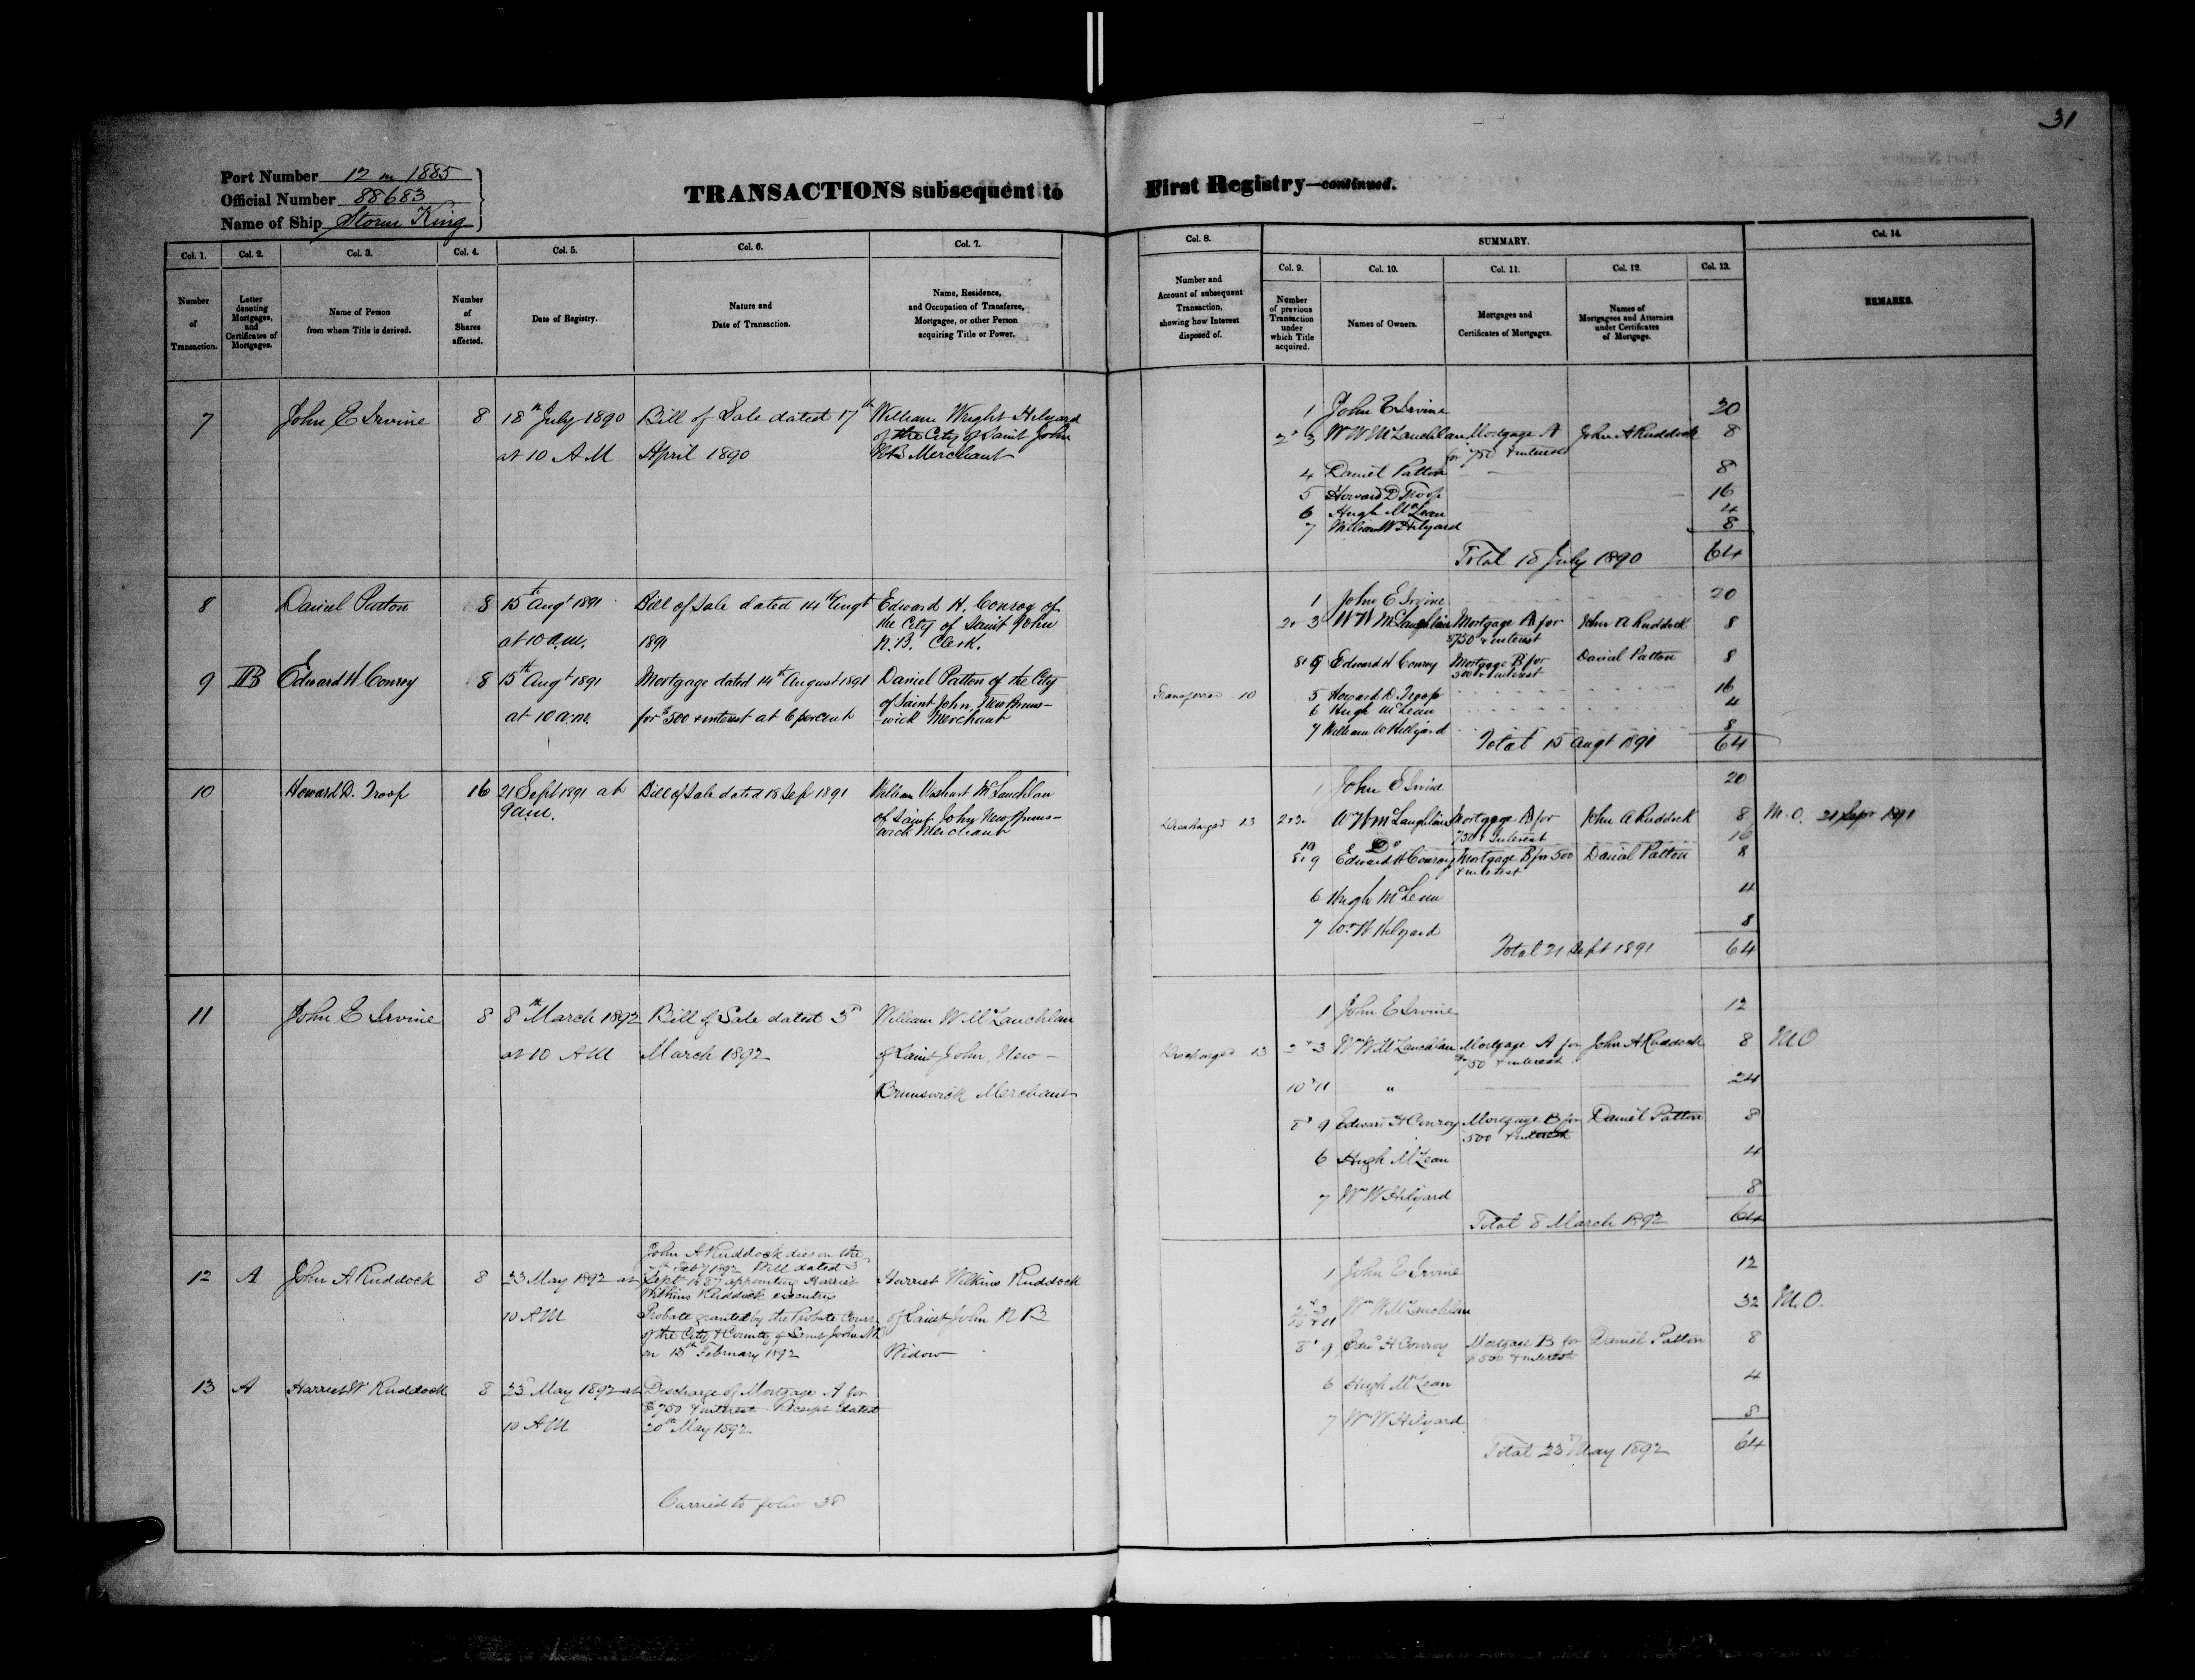 31
Port Number 12 in 1885
Official Number 88683
Name of Ship Storm King
TRANSACTIONS subsequent to First Registry—continued.
Col. 1. Col. 2. Col. 3. Col. 4. Col. 5. Col. 6. Col. 7.
Number of Transaction.
Letter denoting Mortgages, and Certificates of Mortgages.
Name of Person from whom Title is derived.
Number of Shares affected.
Date of Registry.
Nature and Date of Transaction.
Name, Residence, and Occupation of Transferee, Mortgagee, or other Person acquiring Title or Power.
7 John E Irvine 8 18th July 1890 Bill of Sale dated 17th William Wright Hilyard
of the City of Saint John
at 10 AM April 1890 NB Merchant
8 Daniel Patton 8 15th Augt 1891 Bill of Sale dated 14th Augt Edward H. Conroy of
the City of Saint John
at 10 a.m. 1891 N.B. Clerk.
9 B Edward H Conroy 8 15th Augt 1891 Mortgage dated 14th August 1891 Daniel Patton of the City
of Saint John, New Bruns-
at 10 a.m. for $500 & interest at 6 percent wick Merchant
10 Howard D. Troop 16 21 Sept 1891 at Bill of Sale dated 18 Sep 1891 William Washart McLauchlan
9 a.m. of Saint John New Bruns-
wick Merchant
11 John E Irvine 8 8th March 1892 Bill of Sale dated 3d William W McLauchlan
at 10 AM March 1892 of Saint John, New-
Brunswick Merchant
John A Ruddock died on the
Feby 1892 Will dated 3d
12 A John A Ruddock 8 23 May 1892 at Sept 1887 appointing Harriet Harriet Wilkins Ruddock
Wilkins Ruddock executrix
10 AM Probate granted by the Probate Court of Saint John N B
of the City & County of Saint John NB
on 13th February 1892 Widow
13 A Harriet W Ruddock 8 23d May 1892 at Discharge of Mortgage A for
$750 & interest Receipt dated
10 AM 20th May 1892
Carried to folio 38
Col. 8. SUMMARY. Col. 14.
Col. 9. Col. 10. Col. 11. Col. 12. Col. 13.
Number and Account of subsequent Transaction, showing how Interest disposed of.
Number of previous Transaction under which Title acquired.
Names of Owners.
Mortgages and Certificates of Mortgages.
Names of Mortgagees and Attornies under Certificates of Mortgage.
REMARKS.
1 John E Irvine 20
2 & 3 W W McLauchlan Mortgage A John A Ruddock 8
for $750 & interest
4 Daniel Patton 8
5 Howard D Troop 16
6 Hugh McLean 4
7 William W Hilyard 8
Total 18 July 1890 64
1 John E Irvine 20
2 & 3 W W McLaughlin Mortgage A for John A Ruddock 8
$750 & interest
8 & 9 Edward H Conroy Mortgage B for Daniel Patton 8
500 & interest
Transferred 10 5 Howard D Troop 16
6 Hugh McLean 4
7 William W Hillyard 8
Total 15 Augt 1891 64
1 John E Irvine 20
Discharged 13 2 & 3 W W McLaughlin Mortgage A for John A Ruddock 8 M.O. 21 Sepr 1891
750 & Interest
10 Do 16
8 & 9 Edward H Conroy Mortgage B for 500 Daniel Patton 8
& interest
6 Hugh McLean 4
7 Wm W Hilyard 8
Total 21 Sept 1891 64
1 John E Irvine 12
Discharged 13 2 & 3 Wm W McLauchlan Mortgage A for John A Ruddock 8 M.O
$750 & interest
10 & 11 " 24
8 & 9 Edward H Conroy Mortgage B for Daniel Patton 8
500 & interest
6 Hugh McLean 4
7 Wm W Hilyard 8
Total 8 March 1892 64
1 John E Irvine 12
2 & 3
10 & 11 Wm W McLauchlan 32 M.O.
8 & 9 Edwd H Conroy Mortgage B for Daniel Patton 8
$500 & interest
6 Hugh McLean 4
7 Wm W Hilyard 8
Total 23d May 1892 64